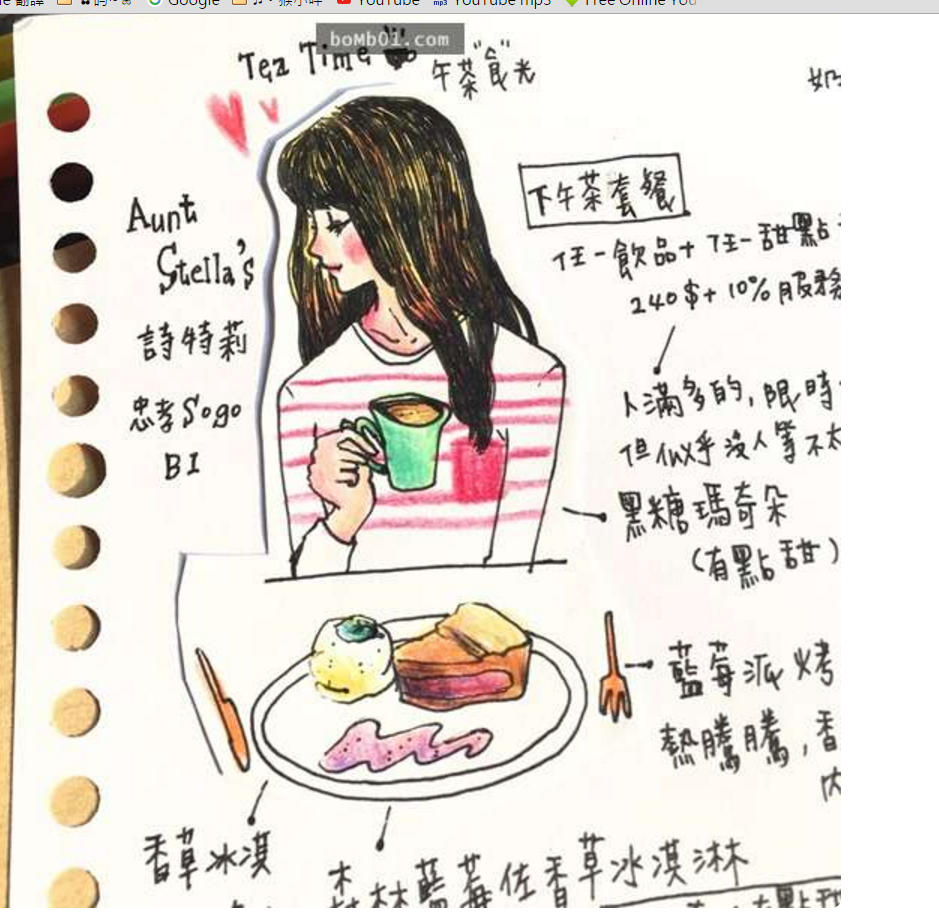 Google
YouTube
YouTube mp3
Free Online You
boMb01.com
Tea Time
午茶"食"光
奶
Aunt
Stella's
詩特莉
忠孝Sogo
B1
下午茶套餐
任一飲品+任一甜點
240$+10%服務
人滿多的,限時
但似乎沒人等不太
黑糖瑪奇朵
(有點甜)
藍莓派 烤
熱騰騰,香
內
香草冰淇
森林藍莓佐香草冰淇淋
有點甜